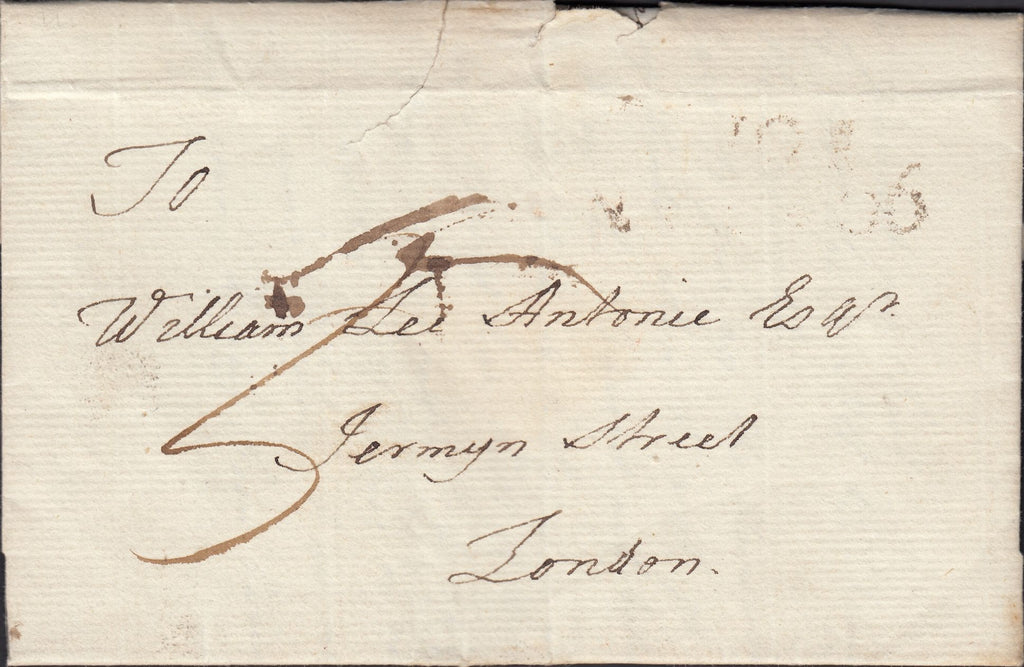 To
William Lee Antonie Esqr.
Jermyn Street
London.